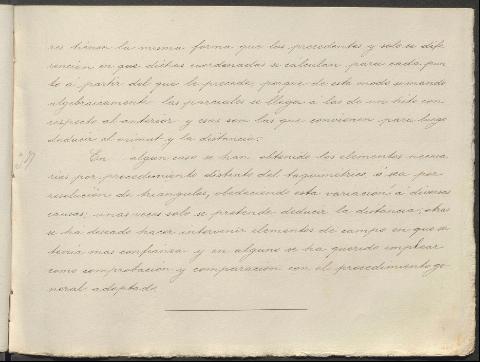 res tienen la misma forma que los precedentes y solo se dife
rencian en que dichas coordenadas se calculan para cada pun
to á partir del que le precede, porque de este modo sumando
algebraicamente las parciales se llega á las de un hito con
respecto al anterior y esas son las que convienen para luego
deducir el azimut y la distancia.
En algun caso se han obtenido los elementos necesa
rios por procedimiento distinto del taquimetrico ó sea por
resolución de triangulos, obedeciendo esta variacion á diversas
causas; unas veces solo se pretende deducir la distancia; otras
se ha deseado hacer intervenir elementos de campo en que se
tenia mas confianza y en alguno se ha querido emplear
como comprobación y comparacion con el procedimiento ge
neral adoptado.